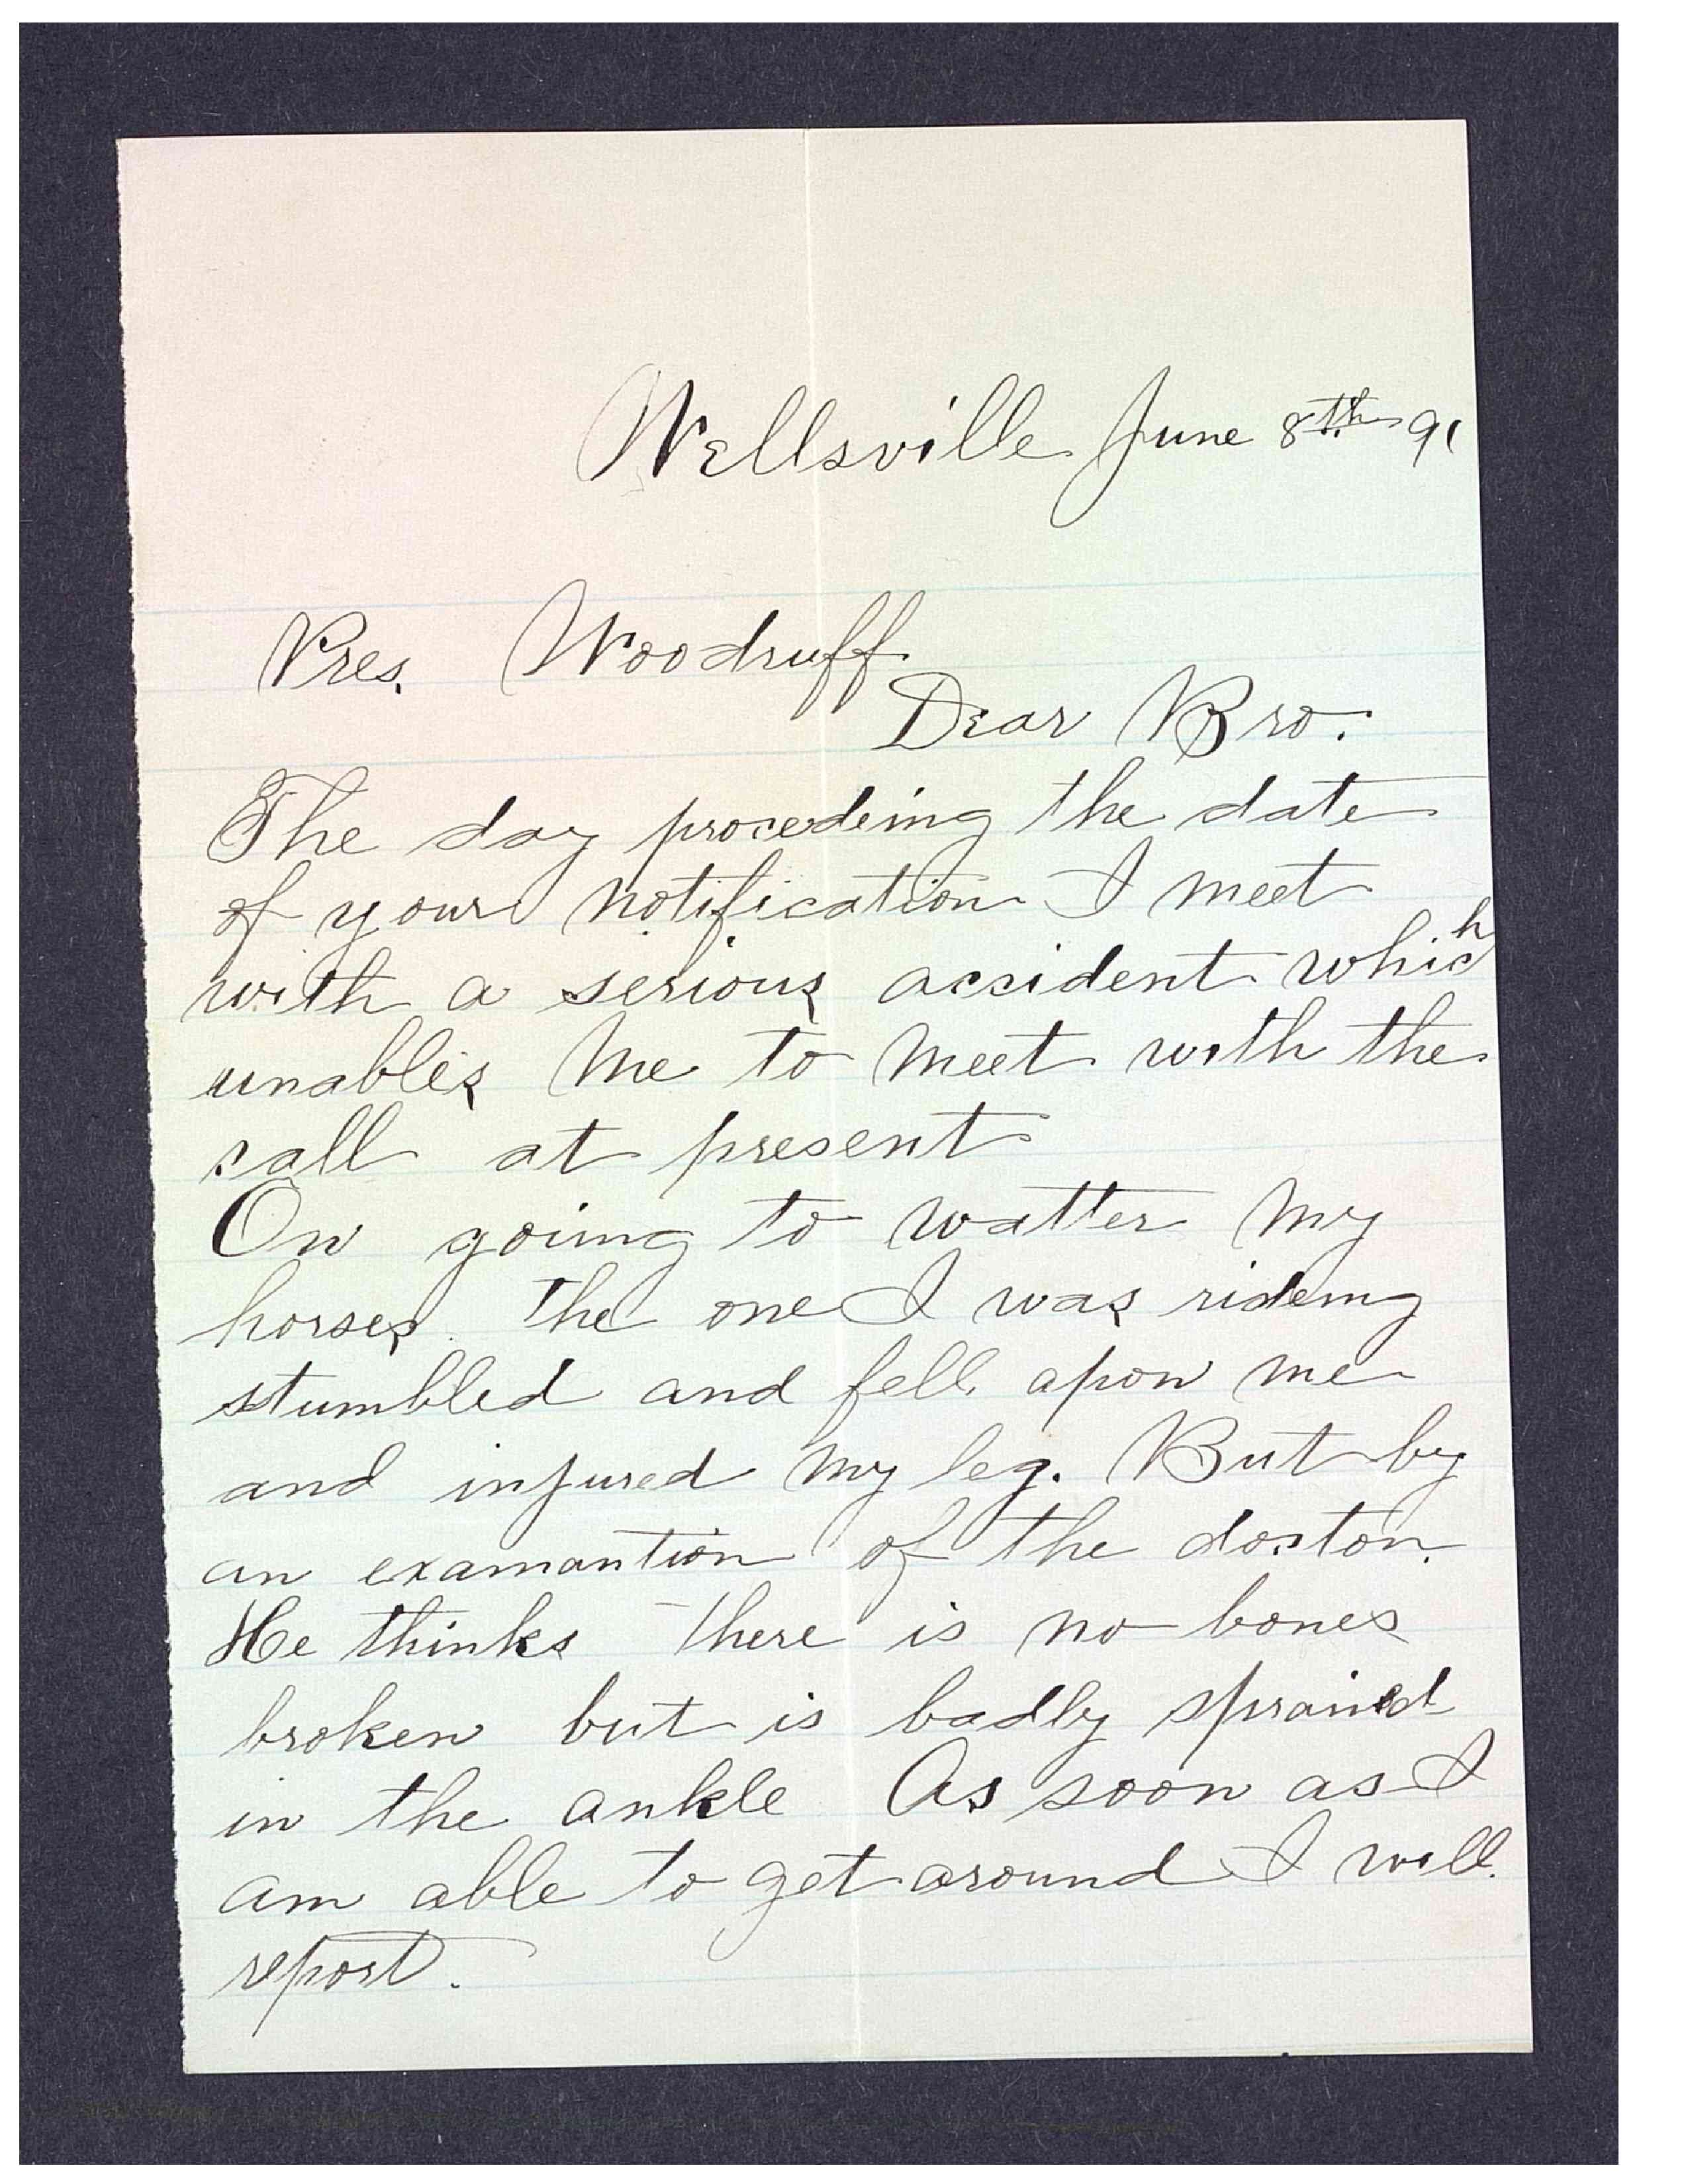 Wellsville June 8th 91
Pres. Woodruff
Dear Bro.
The day procedeing the date
of your notification I meet
with a serious accident which
unables me to meet with the
call at present
On going to watter my
horses. the one I was rideing
stumbled and fell apon me
and injured my leg. But by
an examantion of the doctor.
He thinks there is no bones
broken but is badly spraied
in the ankle As soon as I
am able to get around I will.
report.